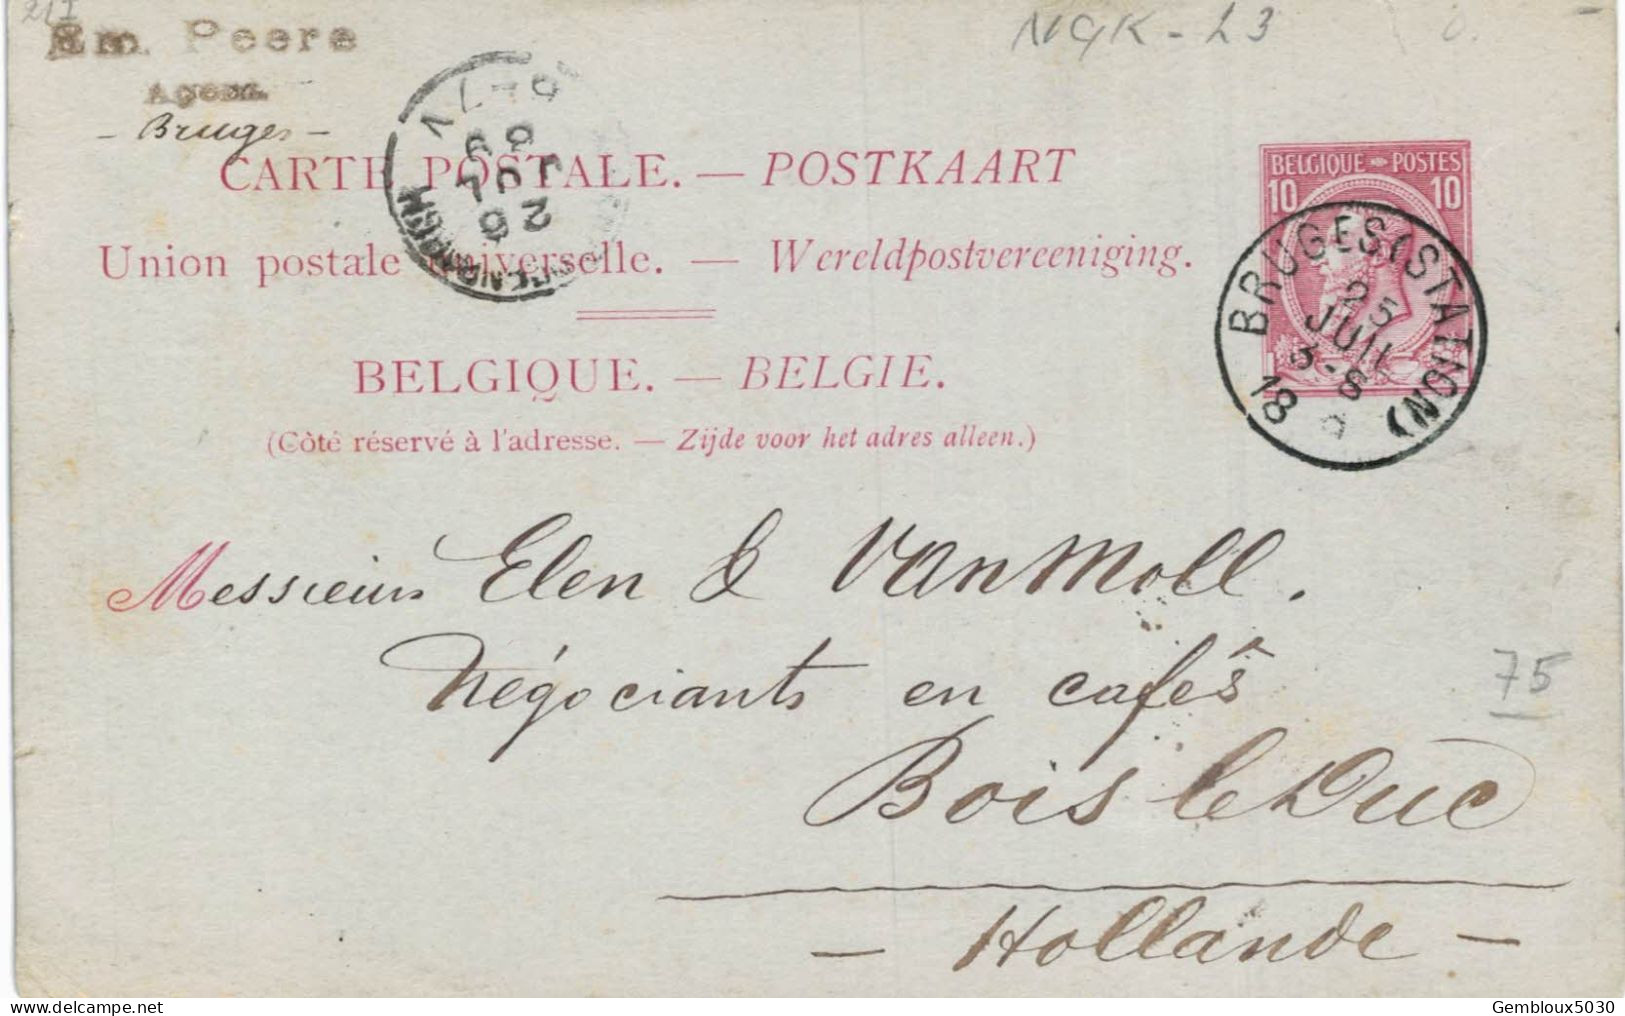 Em. Peere
Agent
- Bruges -
NGK - 23
CARTE POSTALE. — POSTKAART
Union postale universelle. — Wereldpostvereeniging.
BELGIQUE. — BELGIE.
(Côté réservé à l'adresse. — Zijde voor het adres alleen.)
BELGIQUE POSTES
10 10
BRUGES (STATION)
25
JUIL
3-S
18
26
JUL
Messieurs Elen & VanMoll.
Négociants en cafés
75
Bois le Duc
- Hollande -
Gembloux5030